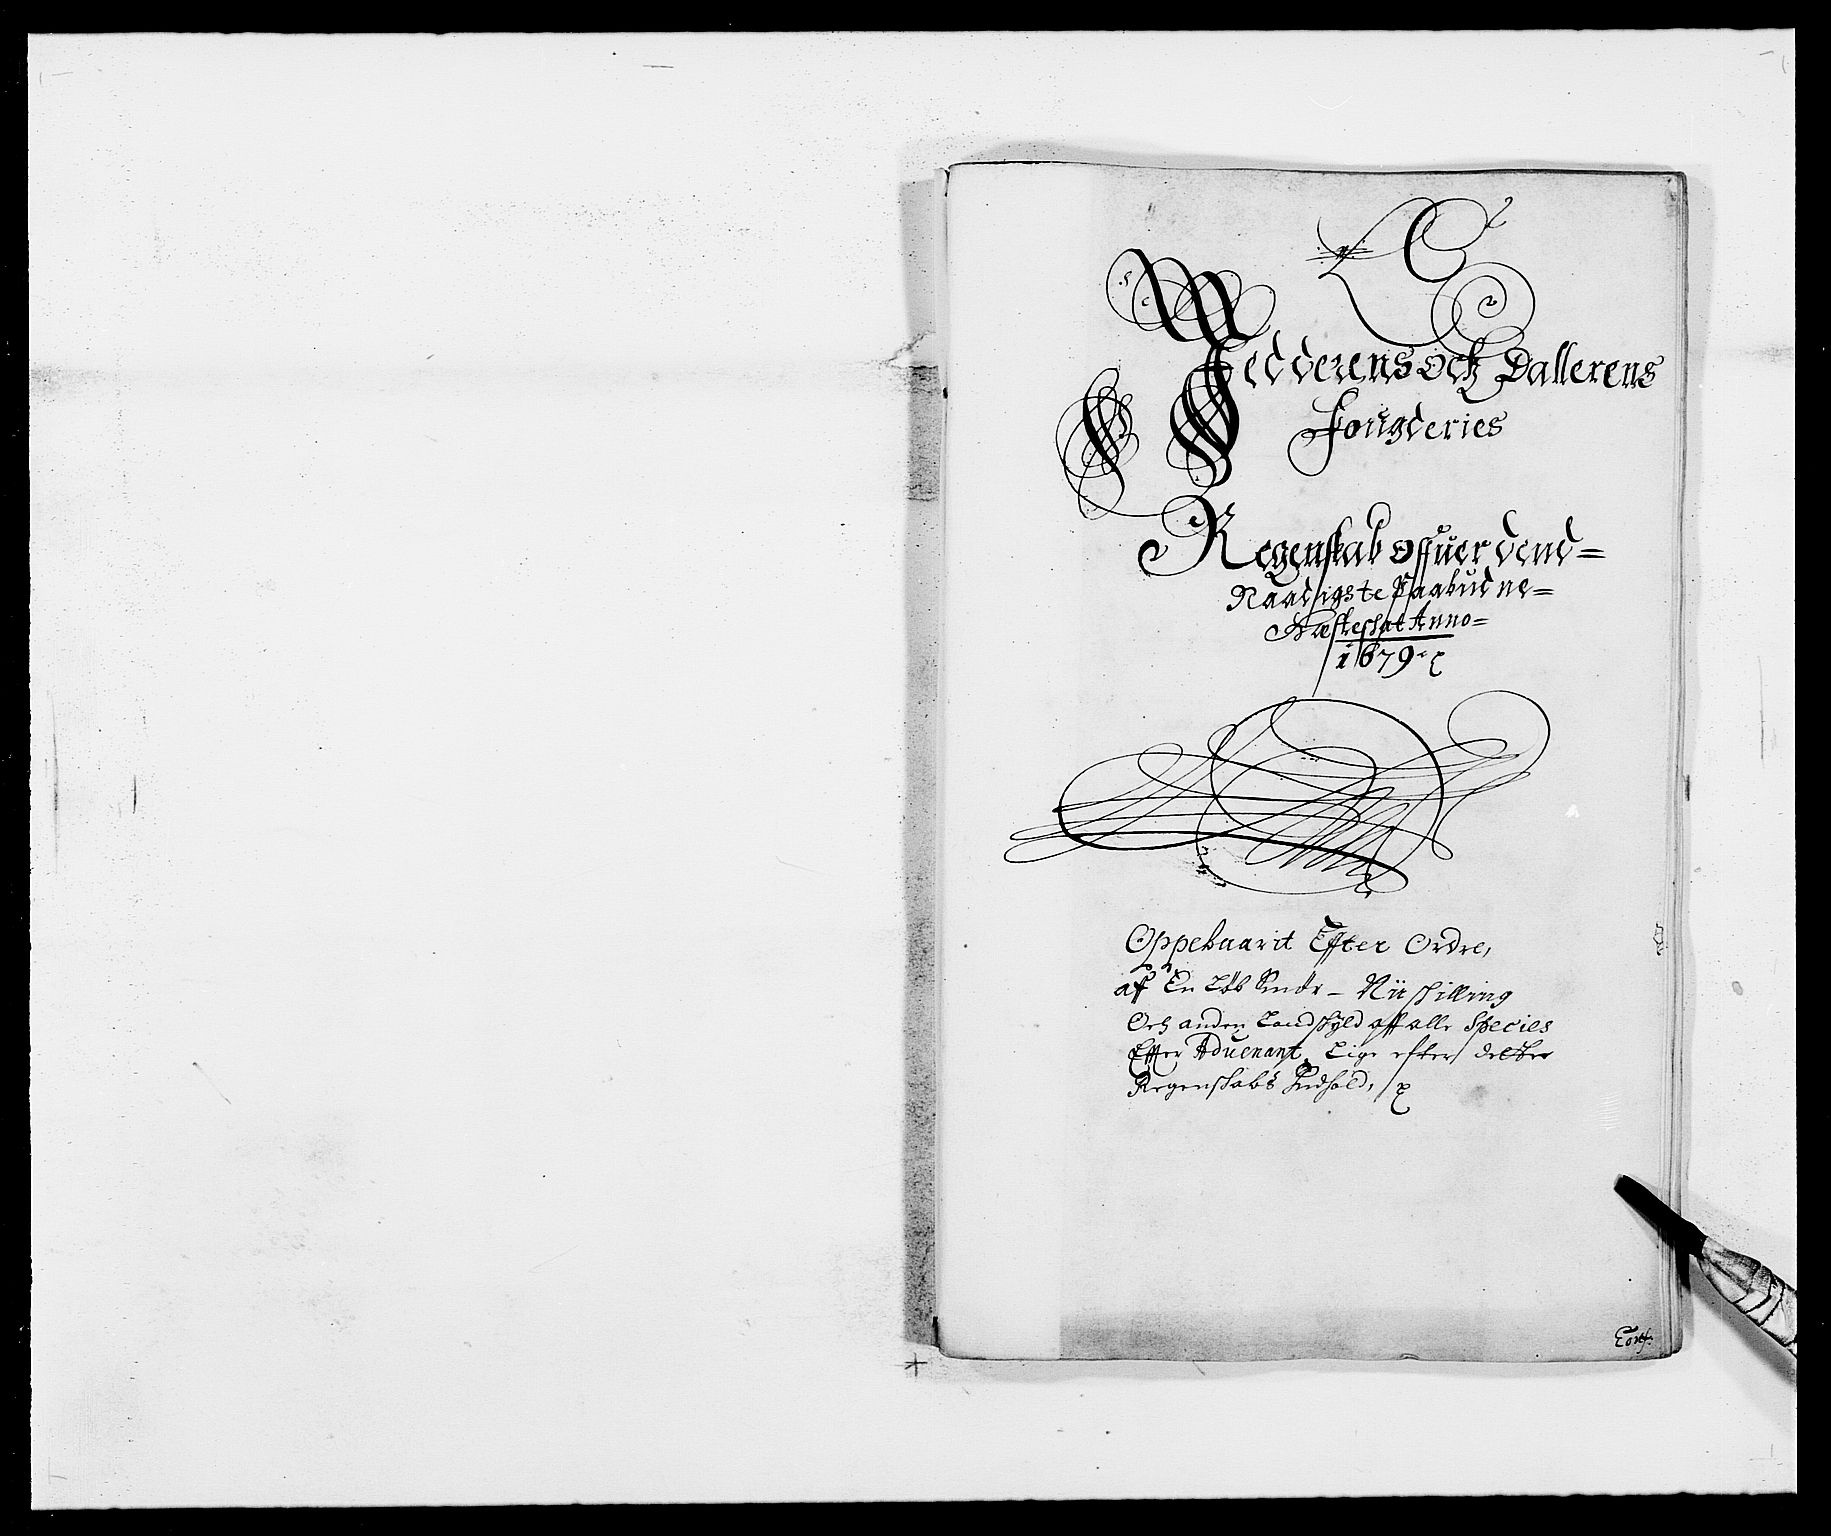 Jedderens och Dallerens
Fougderies
Regenskab offuer dend=
Naadigste Paabudne=
Hæsteschat Anno=
1679
Oppebaarit Efter Ordre,
af En Løb Smör - Nii skilling
Och anden Landskyld aff alle Species
Effter Aduenant, Lige efter dette
Regenskabs Indhold,